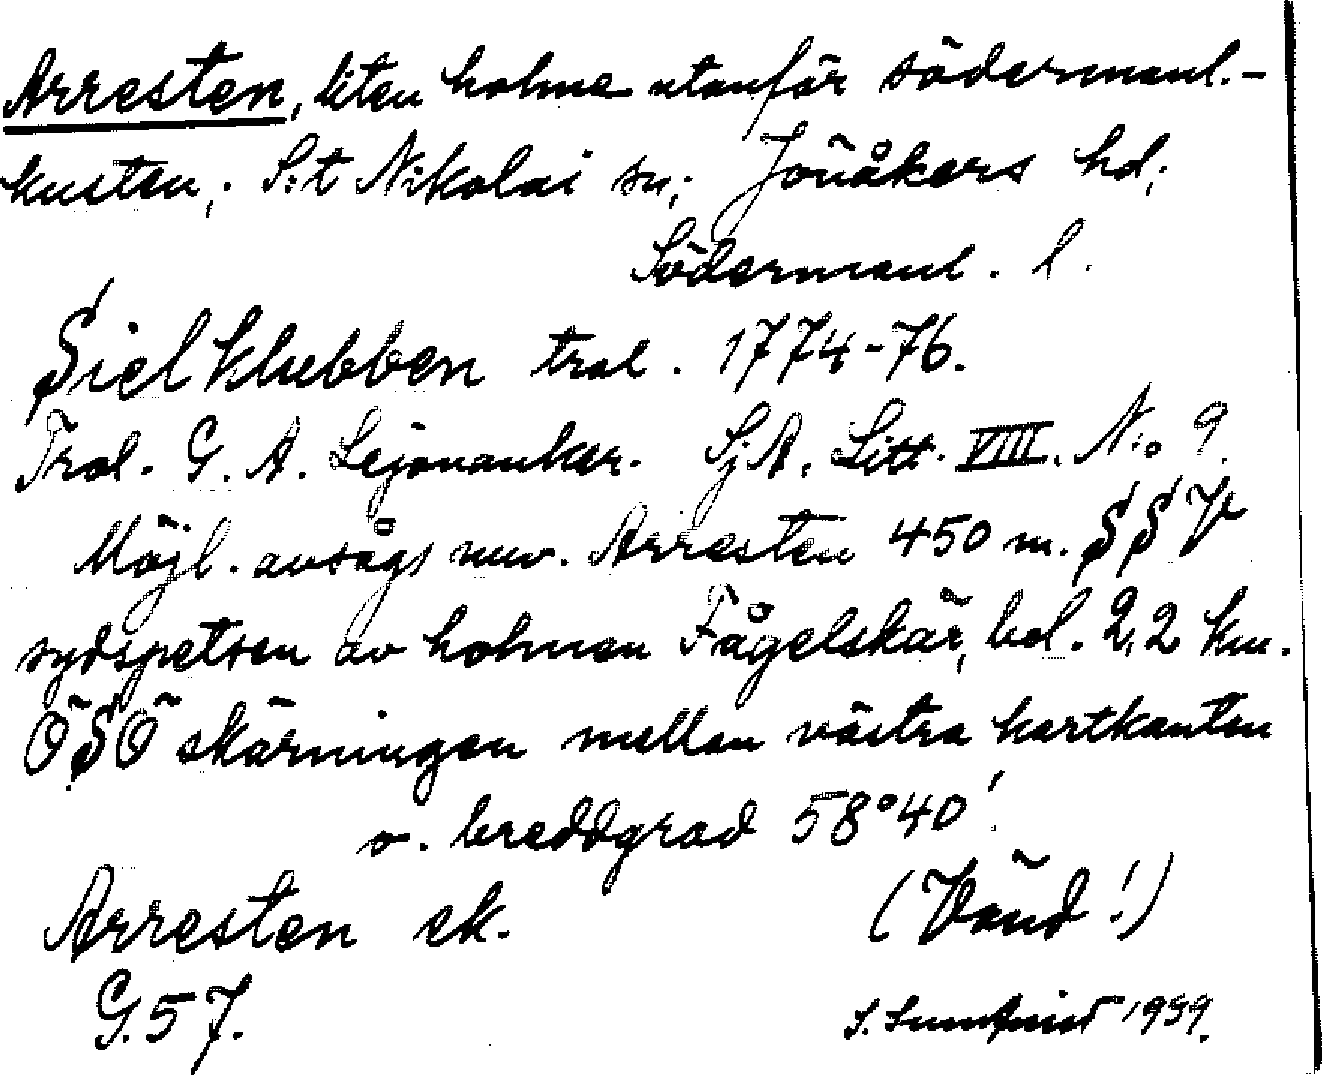 Arresten, liten holme utanför södermanl.-
kusten; S:t Nikolai sn; Jönåkers hd;
Södermanl. l.
Siel klubben trol. 1774-76.
Trol. G. A. Lejonanker. SjA. Litt. VIII. N:o 9.
Möjl. avsågs nuv. Arresten 450 m. SSV
sydspetsen av holmen Fågelskär, bel. 2,2 km.
ÖSÖ skärningen mellan västra kartkanten
o. breddgrad 58°40'.
Arresten ek. (Vänd!)
G.57. S. 1939.